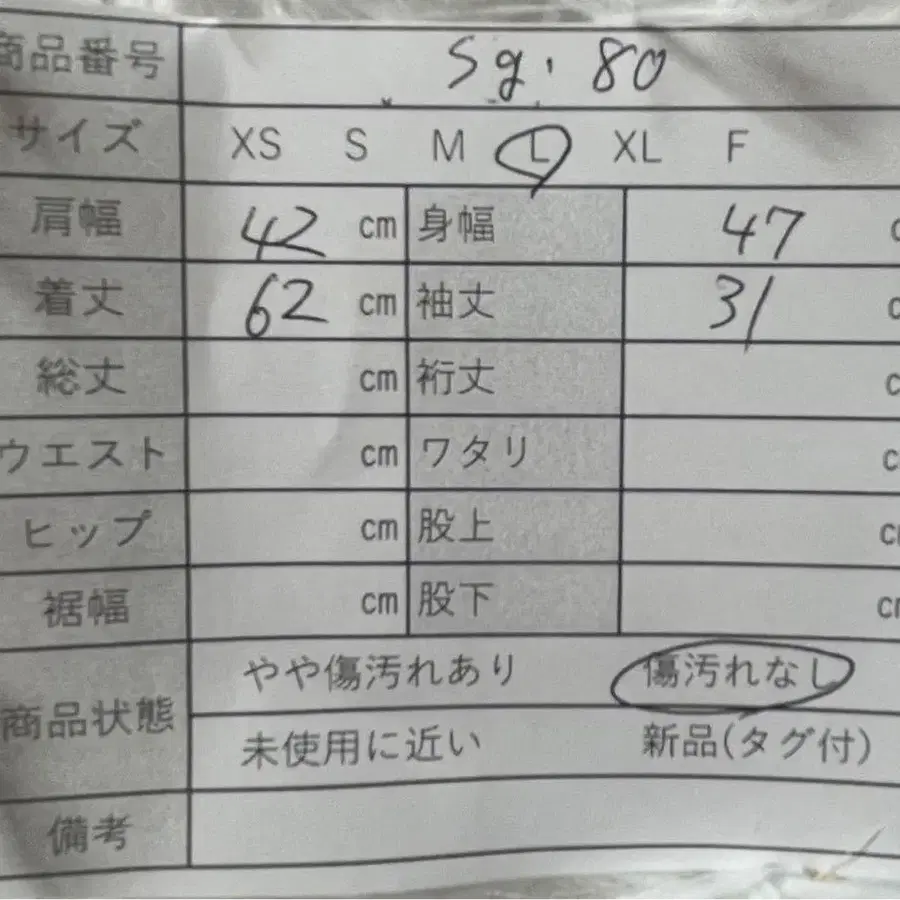 商品番号 Sg. 80
サイズ XS S M L XL F
肩幅 42 cm 身幅 47 c
着丈 62 cm 袖丈 31 c
総丈 cm 裄丈 c
ウエスト cm ワタリ c
ヒップ cm 股上 cm
裾幅 cm 股下 cm
商品状態 やや傷汚れあり 傷汚れなし
未使用に近い 新品(タグ付)
備考